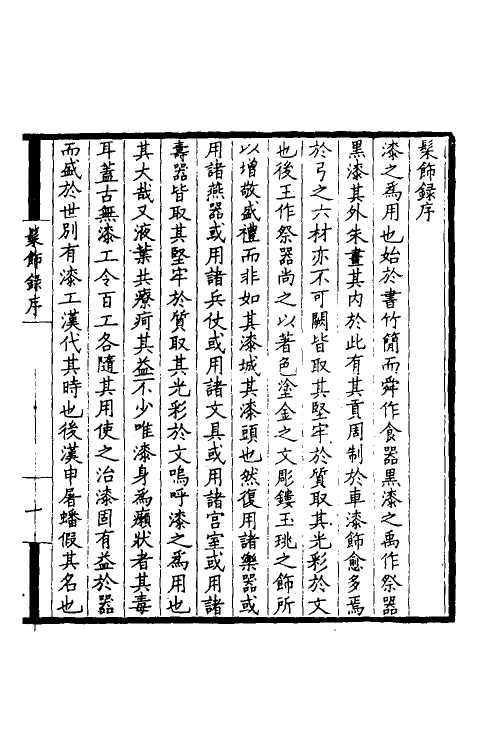 髹飾録序
漆之為用也始於書竹簡而舜作食器黒漆之禹作祭器
黒漆其外朱畫其内於此有其貢周制於車漆飾愈多焉
於弓之六材亦不可闕皆取其堅牢於質取其光彩於文
也後王作祭器尚之以著色塗金之文彫鏤玉珧之飾所
以増敬盛禮而非如其漆城其漆頭也然復用諸樂器或
用諸燕器或用諸兵仗或用諸文具或用諸宫室或用諸
壽器皆取其堅牢於質取其光彩於文嗚呼漆之為用也
其大哉又液葉共療疴其益不少唯漆身為癩狀者其毒
耳蓋古無漆工令百工各隨其用使之治漆固有益於器
而盛於世别有漆工漢代其時也後漢申屠蟠假其名也
髹飾録序
一